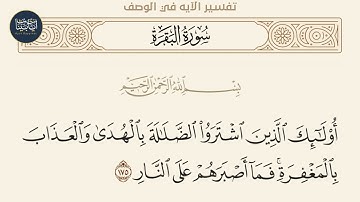 تفسير الآية في الوصف
سُورَةُ البَقَرَةِ
بِسْمِ اللَّهِ الرَّحْمَٰنِ الرَّحِيمِ
أُوْلَٰٓئِكَ ٱلَّذِينَ ٱشْتَرَوُاْ ٱلضَّلَٰلَةَ بِٱلْهُدَىٰ وَٱلْعَذَابَ
بِٱلْمَغْفِرَةِۚ فَمَآ أَصْبَرَهُمْ عَلَى ٱلنَّارِ ١٧٥